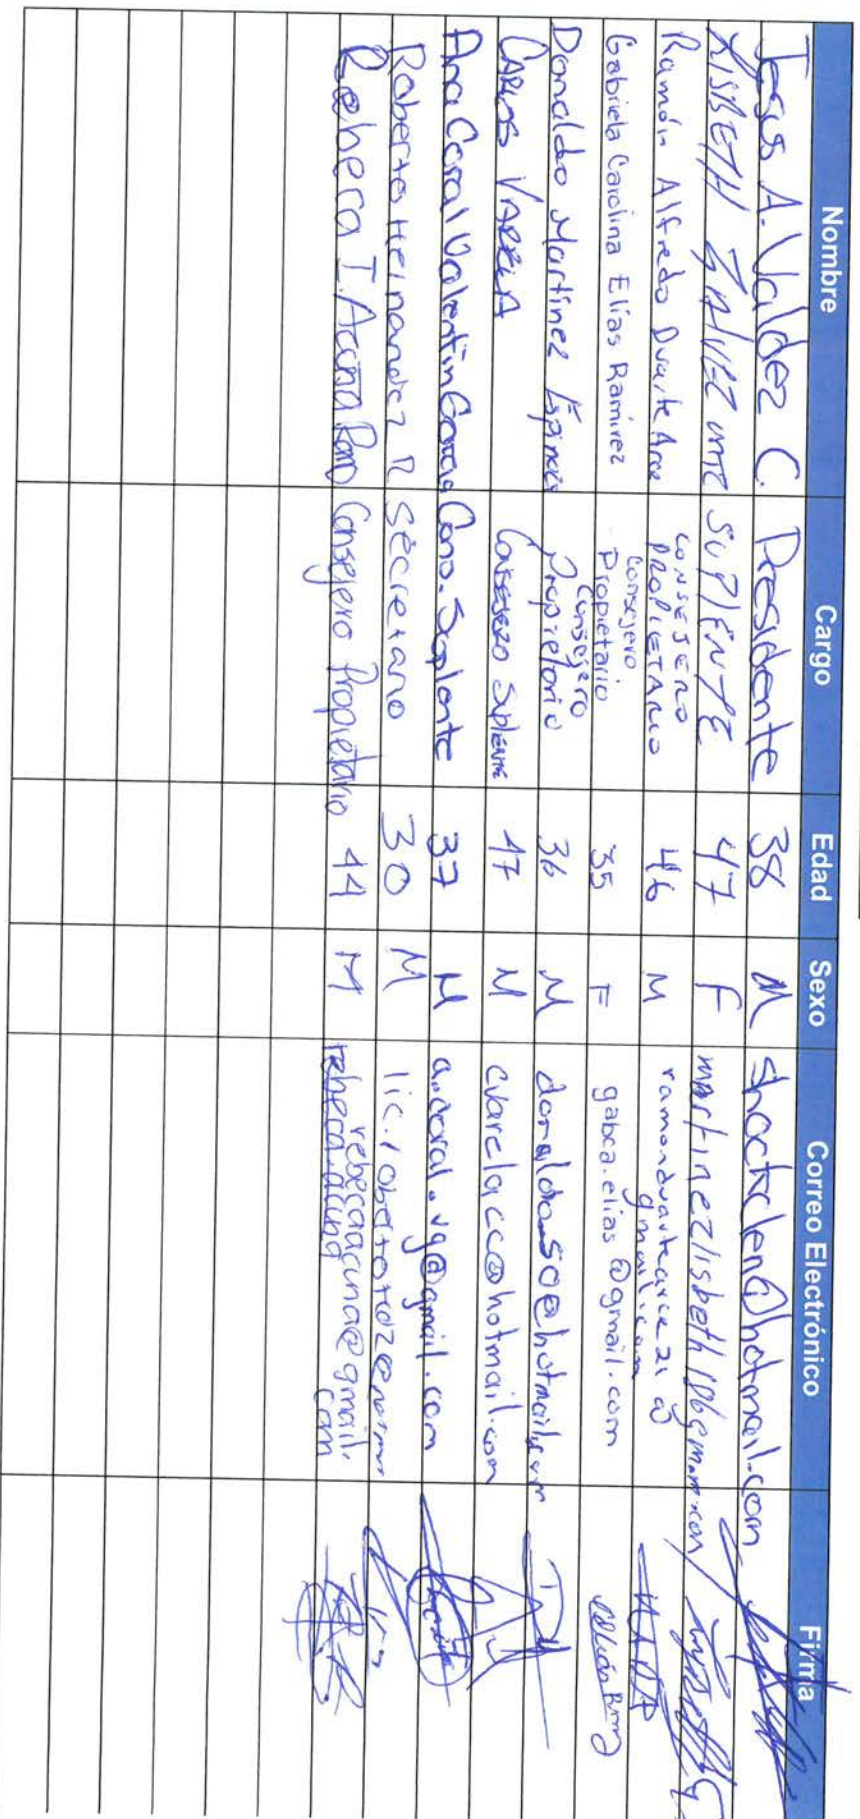 Nombre Cargo Edad Sexo Correo Electrónico Firma
Jesus A. Valdez C. Presidente 38 M shocktclen@hotmail.com
LISBETH GALVEZ MTZ SUPLENTE 47 F martinezlisbeth186@
Ramón Alfredo Duarte Arce CONSEJERO PROPIETARIO 46 M ramonduartearce21@gmail.com
Gabriela Carolina Elías Ramírez Consejero Propietario 35 F gabca.elias@gmail.com
Donaldo Martínez Espinoza Consejero Propietario 36 M donaldo_soe@hotmail.com
CARLOS VARELA Consejero Suplente 47 M cvarelacc@hotmail.com
Ana Coral Valentin Garcia Cons. Suplente 37 M a.coral.vg@gmail.com
Roberto Hernandez R Secretario 30 M
Rebeca I. Acuña Romo Consejero Propietario 44 M rebecaacuna@gmail.com